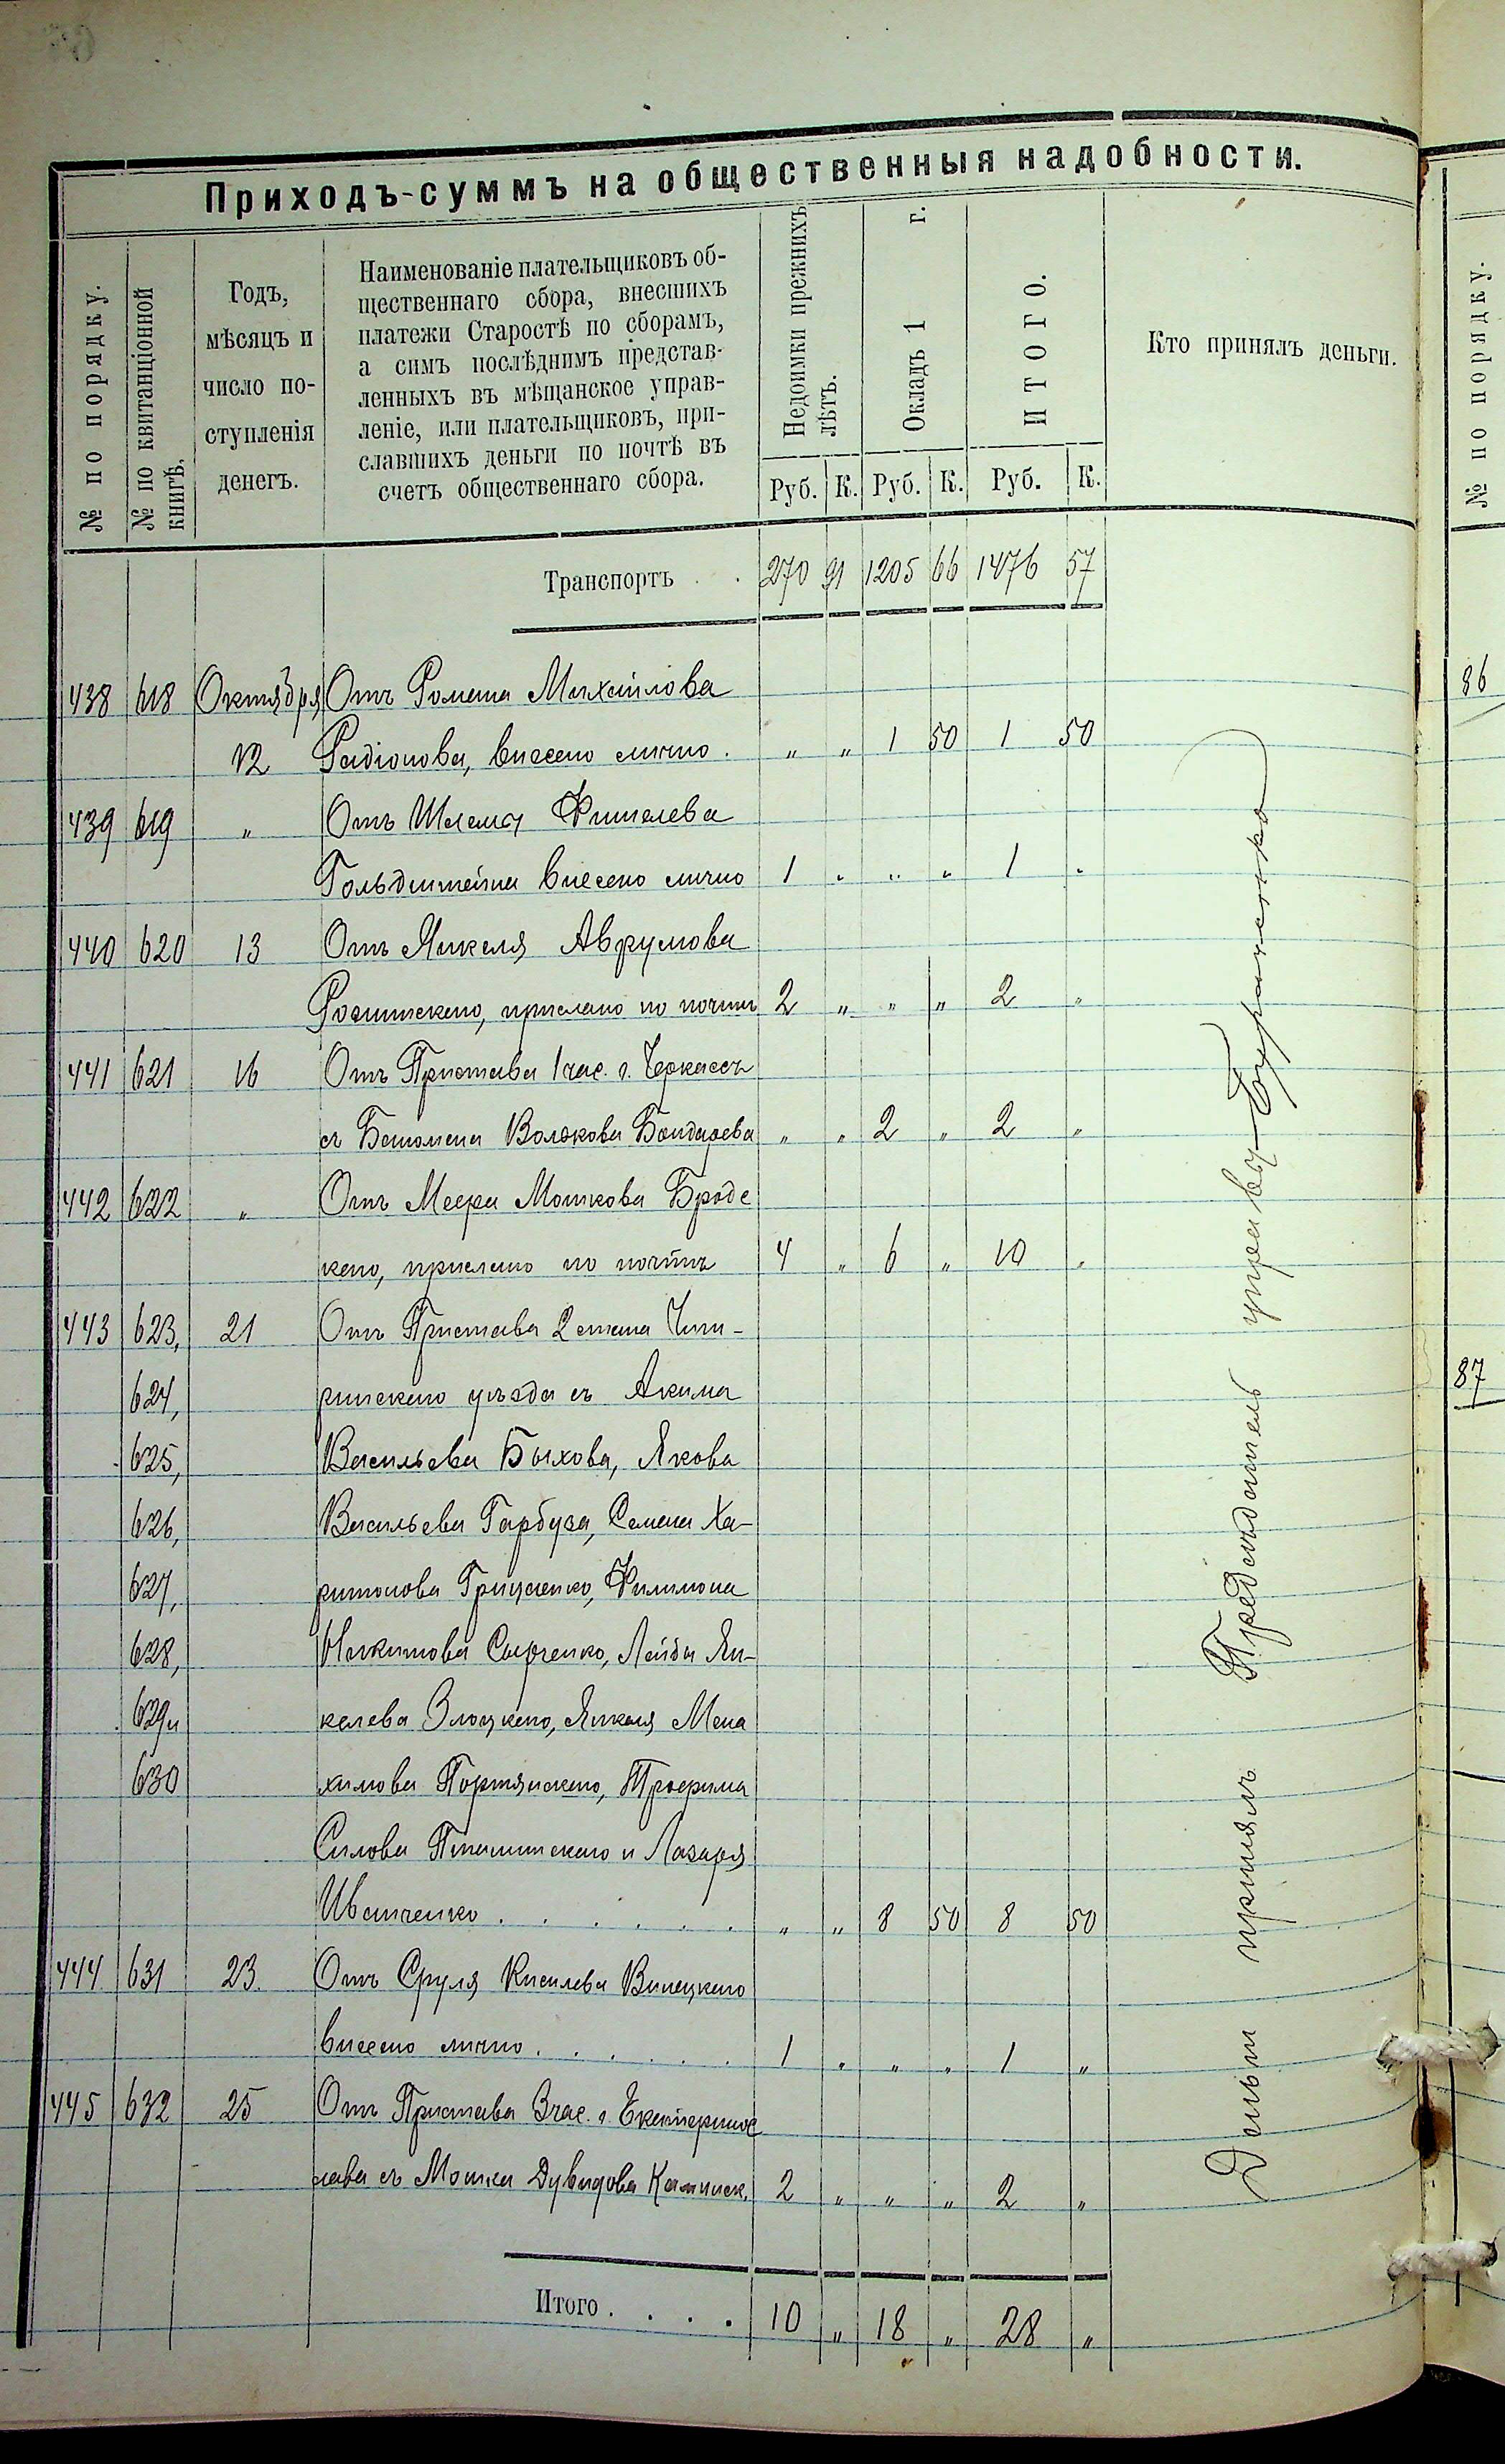 Приходъ-суммъ на общественныя надобности.
№ по порядку.
№ по квитанціонной книгѣ.
Годъ,
мѣсяцъ и
число по-
ступленія
денегъ.
Наименованіе плательщиковъ об-
щественнаго сбора, внесшихъ
платежи Старостѣ по сборамъ,
а симъ послѣднимъ представ-
ленныхъ въ мѣщанское управ-
леніе, или плательщиковъ, при-
славшихъ деньги по почтѣ въ
счетъ общественнаго сбора.
Недоимки прежнихъ лѣтъ.
Окладъ 1 г.
ИТОГО.
Кто принялъ деньги.
Руб. К. Руб. К. Руб. К.
Транспортъ . . 270 91 1205 66 1476 57
438 618 Октября Отъ Романа Михайлова
12 Радіонова, внесено лично . „ „ 1 50 1 50
439 619 „ Отъ Шлемы Фишелева
Гольдштейна внесено лично 1 „ „ „ 1 „
440 620 13 Отъ Янкеля Аврумова
прислано по почтѣ 2 „ „ „ 2 „
441 621 16 Отъ Пристава 1 час. г. Черкассъ
съ Волькова Бондарева „ „ 2 „ 2 „
442 622 „ Отъ Меера Мошкова Бродс
каго, прислано по почтѣ 4 „ 6 „ 10 „
443 623, 21 Отъ Пристава 2 стана Чиги-
624, ринскаго уѣзда съ Акима
625, Васильева Быхова, Якова
626, Васильева Гарбуза, Семена Ха-
627, ритонова Грищенко, Филимона
628, Никитова Сырченко, Лейбы Ян-
629 и келева Злоцкаго, Янкеля Мена
630 химова Портянскаго, Трофима
Силова Пташинскаго и Лазаря
Иванченко . . . . . . „ „ 8 50 8 50
444 631 23. Отъ Сруля Кисилева Винецкаго
внесено лично . . . . . . 1 „ „ „ 1 „
445 632 25 Отъ Пристава 3 час. г. Екатеринос
лава съ Мошка Дувидова Каминск. 2 „ „ „ 2 „
Итого . . . . 10 „ 18 „ 28 „
Деньги принялъ Предсѣдатель управы
№ по порядку.
86
87